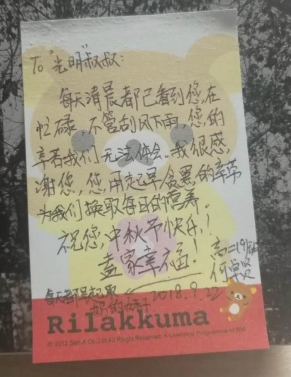 To "光明"叔叔：
每天清晨都已看到您在
忙碌，不管刮风下雨，您的
辛苦我们无法体会，我很感
谢您，您用起早贪黑的辛苦
为我们换取每日的营养。
祝您，中秋节快乐！
阖家幸福！
高二19班
每天都
2018.9.22
Rilakkuma